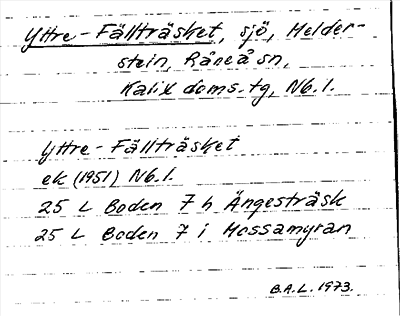 Yttre-Fällträsket, sjö, Melder-
stein, Råneå sn,
Kalix doms.tg, Nb.l.
Yttre-Fällträsket
ek (1951) Nb.l.
25 L Boden 7 h Ängesträsk
25 L Boden 7 i Mossamyran
B.A.L. 1973.